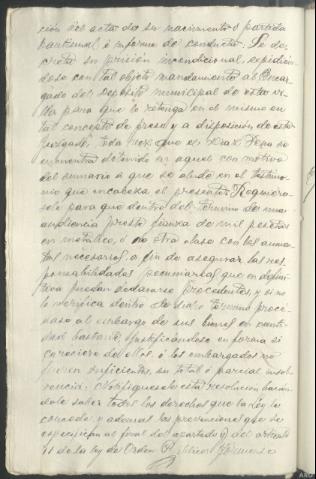 ción del acta de su nacimiento ó partida
bautismal é informe de conducta. Se de-
creta su prisión incondicional, expidién-
dose con tal objeto mandamiento al Encar-
gado del Depósito municipal de esta vi-
lla para que le retenga en el mismo en
tal concepto de preso y a disposición de este
Juzgado, toda vez que el Díaz Pena se
encuentra detenido en aquel con motivo
del sumario a que se alude en el testimo-
nio que encabeza el presente. Requiéra-
sele para que dentro del término de una
audiencia preste fianza de mil pesetas
en metálico, ó en otra clase con los aumen-
tos necesarios, a fin de asegurar las res-
ponsabilidades pecuniarias que en defini-
tiva puedan declararse procedentes, y si no
lo verifica dentro de dicho término proce-
dase al embargo de sus bienes en canti-
dad bastante, justificándose en forma si
careciere de ellos, ó los embargados no
fueren suficientes, su total ó parcial insol-
vencia. Notifíquesele esta resolución hacién-
dole saber todos los derechos que la Ley le
concede y además los provisionales que se
especifican al final del apartado del artículo
de la ley de Orden Público